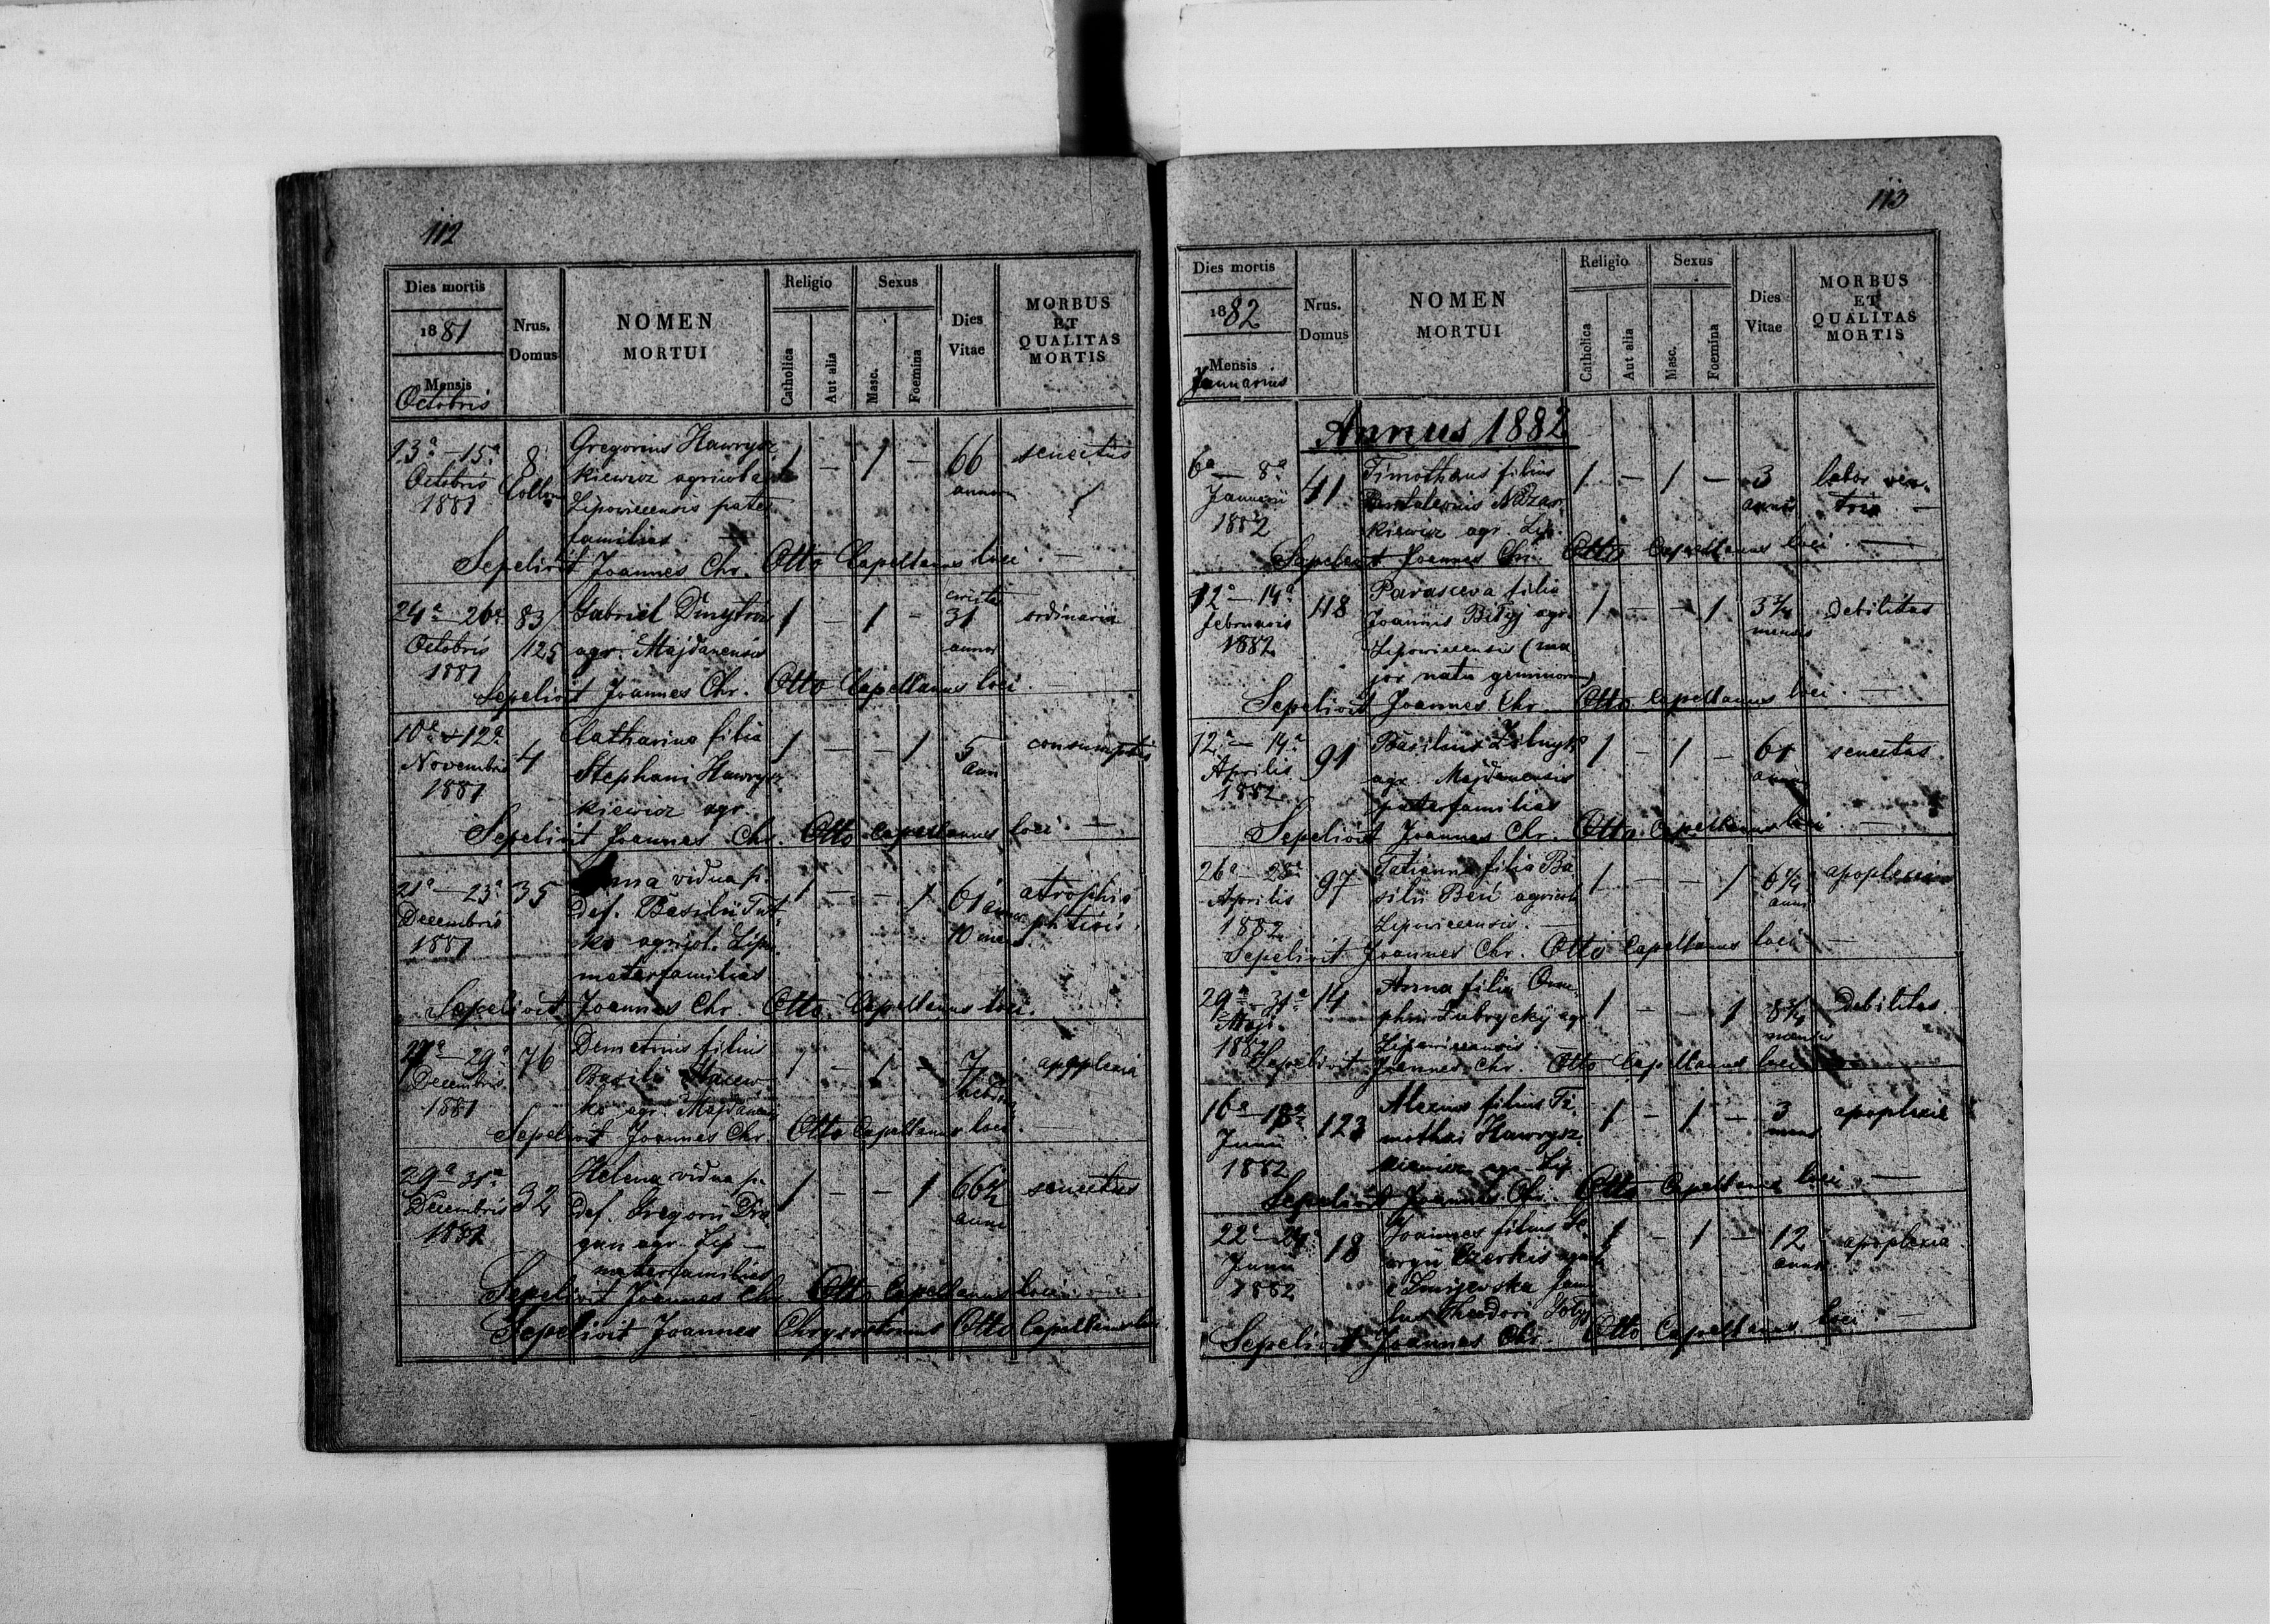 112
Dies mortis
1881
Mensis
Octobris
Nrus.
Domus
NOMEN
MORTUI
Religio
Catholica
Aut alia
Sexus
Masc.
Foemina
Dies
Vitae
MORBUS
ET
QUALITAS
MORTIS
13a — 15a
Octobris
1881
8
Gregorius Hawrysz
kiewicz agricola
Lipowiecensis pater
familias
1 — 1 —
66
annor
senectus
Sepelivit Joannes Chr. Otto Capellanus loci. —
24a — 26a
Octobris
1881
83/
125
Gabriel Dmytrow
agr. Majdanensis
1 — 1 —
31
annor
ordinaria
Sepelivit Joannes Chr. Otto Capellanus loci. —
10a — 12a
Novembris
1881
4
Catharina filia
Stephani Hawrysz
kiewicz agr.
1 — — 1
5
ann
Sepelivit Joannes Chr. Otto Capellanus loci. —
21a — 23a
Decembris
1881
35
vidua p.
def. Basilii
agricol. Lipo
materfamilias
1 — — 1
61
10
Sepelivit Joannes Chr. Otto Capellanus loci.
27a — 29a
Decembris
1881
76
Demetrius filius
Basili
ko agr. Majdanen
1 — 1 —
7
apoplexia
Sepelivit Joannes Chr. Otto Capellanus loci. —
29a 31a
Decembris
1881
32
Helena vidua p.
def. Gregorii Dra
gan agr. Lip —
materfamilias
1 — — 1
66
senectus
Sepelivit Joannes Chr. Otto Capellanus loci. —
Sepelivit Joannes Chrysostomus Otto Capellanus loci.
113
Dies mortis
1882
Mensis
Januarius
Nrus.
Domus
NOMEN
MORTUI
Religio
Catholica
Aut alia
Sexus
Masc.
Foemina
Dies
Vitae
MORBUS
ET
QUALITAS
MORTIS
Annus 1882
6a — 8a
Januarii
1882
41
Timotheus filius
Pantaleonis Nazar
kiewicz agr. Lip.
1 — 1 —
3
annis
labor ven-
tris —
Sepelivit Joannes Chr. Otto Capellanus loci. —
12a — 14a
februaris
1882
118
Parasceva filia
Joannis agr.
Lipowiecensis (ma
jor natu geminorum)
1 — — 1
3 3/4
mensis
debilitas
Sepelivit Joannes Chr. Otto Capellanus loci. —
12a — 14a
Aprilis
1882
91
Basilius
agr. Majdanensis
paterfamilias
1 — 1 —
senectus
Sepelivit Joannes Chr. Otto Capellanus loci. —
26a — 28a
Aprilis
1882
97
Tatianna filia Ba
silii agricol
Lipowiecensis. —
1 — — 1
6 1/4
anni
apoplexia
Sepelivit Joannes Chr. Otto Capellanus loci —
29a — 31a
Maji
1882
14
Anna filia Onu-
phrii Zubrycky agr
Lipowiecensis. —
1 — — 1
8 3/4
mensis
Debilitas
Sepelivit Joannes Chr. Otto Capellanus loci
16a — 18a
Junii
1882
123
Alexius filius Ti-
mothei Hawrysz
kiewicz agr. Lip
1 — 1 —
3
mens
apoplexia
Sepelivit Joannes Chr. Otto Capellanus loci. —
22a — 24a
Junii
1882
18
Joannes filius Ge
orgii
fam
lus Theodori
1 — 1 —
12
annor
apoplexia
Sepelivit Joannes Chr. Otto Capellanus loci. —